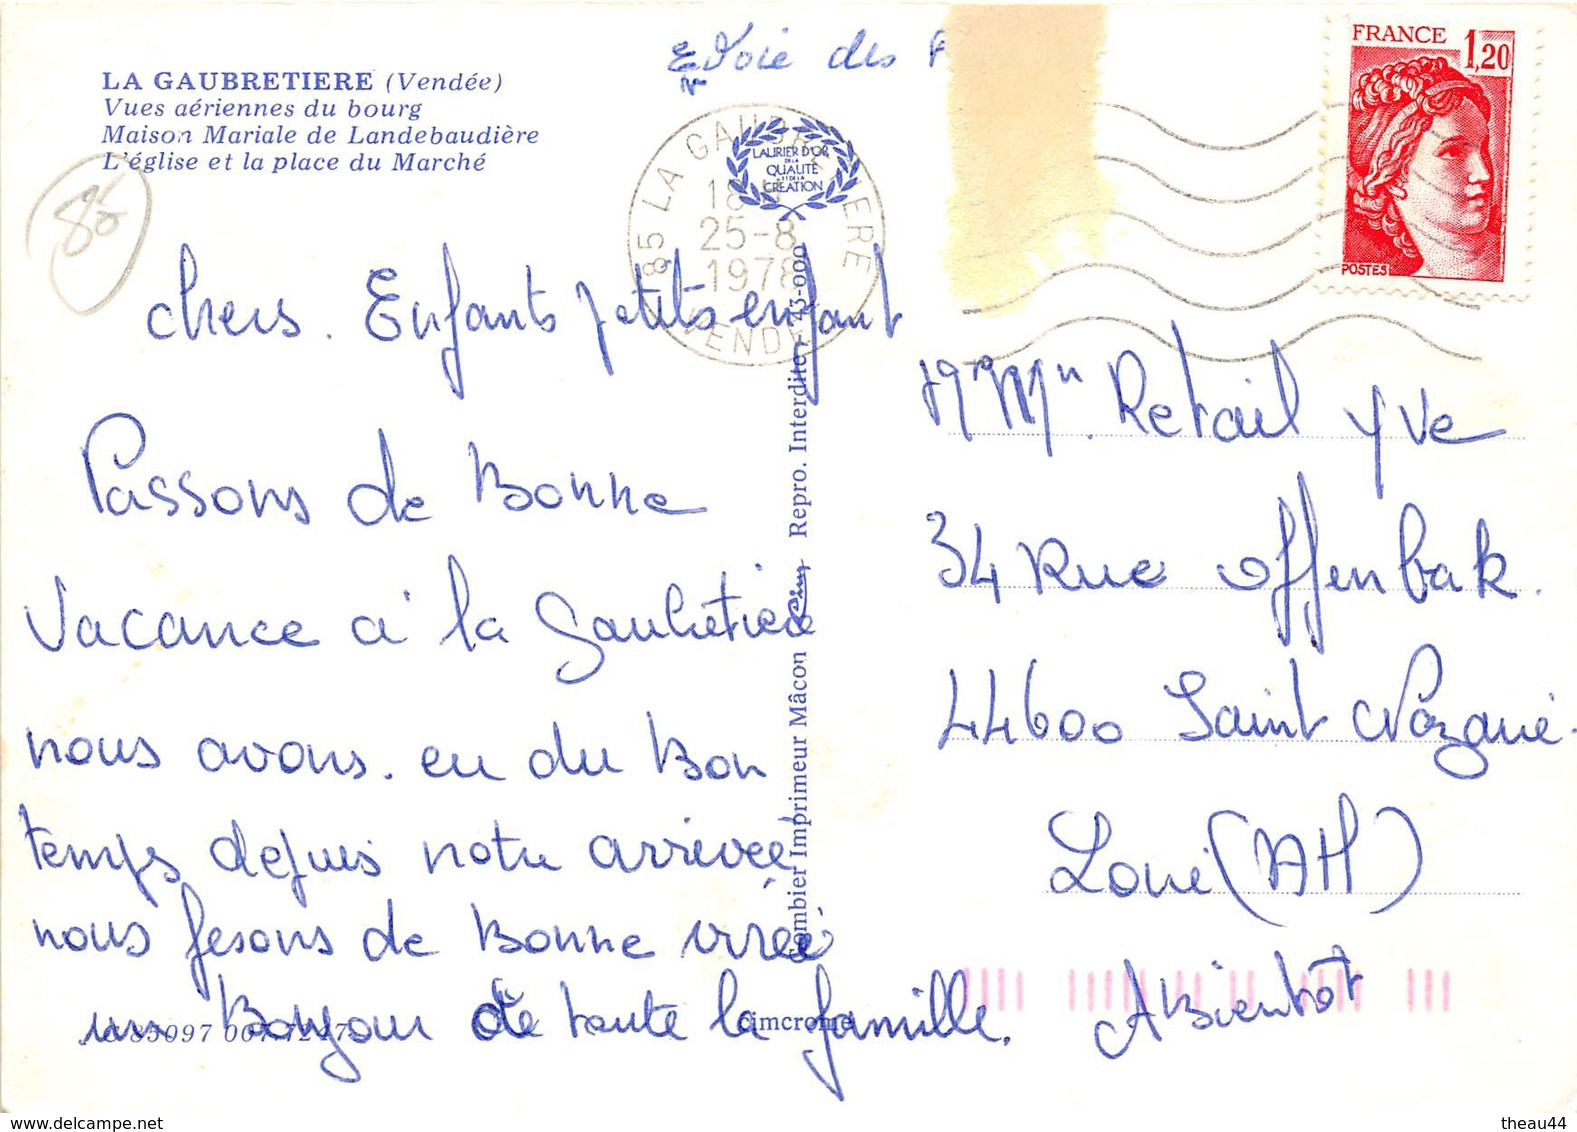 LA GAUBRETIERE (Vendée)
Vues aériennes du bourg
Maison Mariale de Landebaudière
L'église et la place du Marché
85
Voie des
FRANCE 1,20
POSTES
85 LA GAUBRETIERE
18
25-8
1978
VENDEE
LAURIER D'OR
DE LA
QUALITÉ
ET DE LA
CRÉATION
chers. Enfants petits enfant
Passons de Bonne
Vacance a la Gaubretiere
nous avons. eu du Bon
temps depuis notre arrivée
nous fesons de Bonne virée
un Bonjour de toute la famille.
A Bientôt
Retail Yve
34 Rue offenbak.
44600 Saint Nazaire.
Loire (Atl)
Combier Imprimeur Mâcon Cim Repro. Interdite - 43-000
Cimcrome
theau44